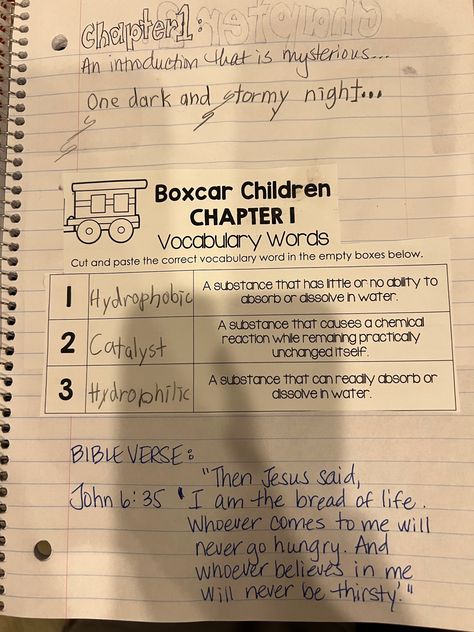 Chapter 1:
An introduction that is mysterious...
One dark and stormy night...
Boxcar Children
CHAPTER 1
Vocabulary Words
Cut and paste the correct vocabulary word in the empty boxes below.
1 Hydrophobic A substance that has little or no ability to
absorb or dissolve in water.
2 Catalyst A substance that causes a chemical
reaction while remaining practically
unchanged itself.
3 Hydrophilic A substance that can readily absorb or
dissolve in water.
BIBLE VERSE:
"Then Jesus said,
John 6:35 'I am the bread of life.
Whoever comes to me will
never go hungry. And
whoever believes in me
will never be thirsty.'"